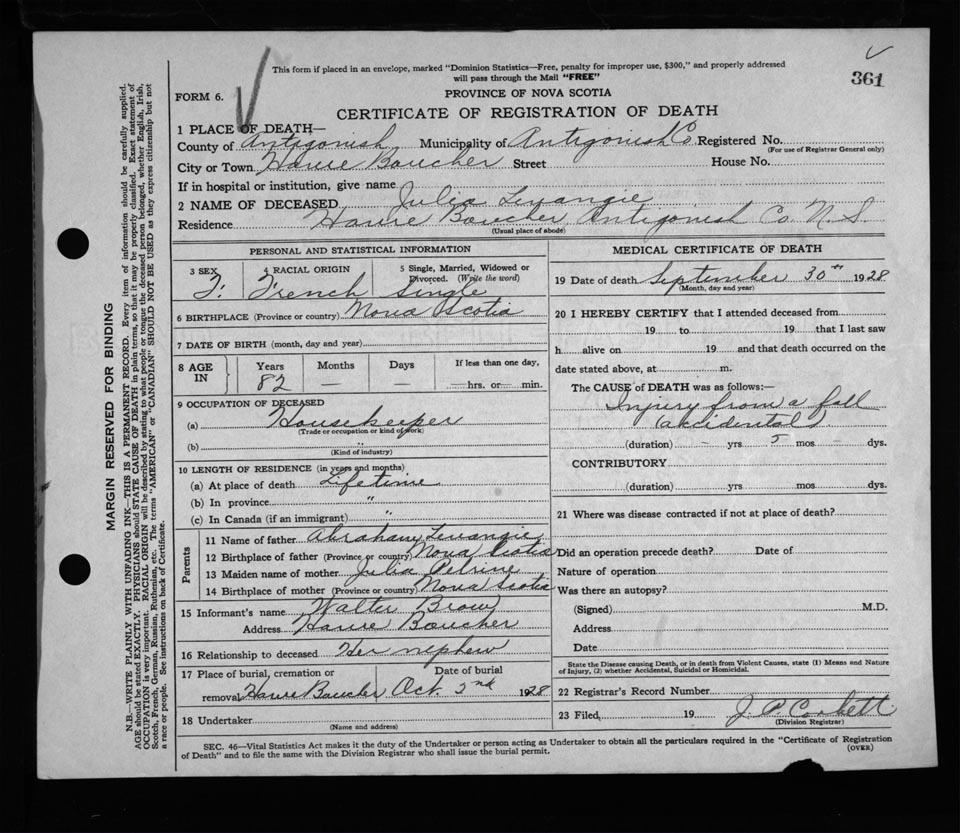 This form if placed in an envelope, marked "Dominion Statistics—Free, penalty for improper use, $300," and properly addressed
will pass through the Mail "FREE"
361
FORM 6.
PROVINCE OF NOVA SCOTIA
CERTIFICATE OF REGISTRATION OF DEATH
1 PLACE OF DEATH—
County of Antigonish Municipality of Antigonish Co Registered No.
(For use of Registrar General only)
City or Town Havre Boucher Street House No.
If in hospital or institution, give name
2 NAME OF DECEASED Julia Levangie
Residence Havre Boucher Antigonish Co. N.S.
(Usual place of abode)
PERSONAL AND STATISTICAL INFORMATION
3 SEX 4 RACIAL ORIGIN 5 Single, Married, Widowed or
Divorced. (Write the word)
F. French Single
6 BIRTHPLACE (Province or country) Nova Scotia
7 DATE OF BIRTH (month, day and year)
8 AGE IN Years Months Days If less than one day,
82 — — —hrs. or— min.
9 OCCUPATION OF DECEASED
(a) Housekeeper
(Trade or occupation or kind of work)
(b) "
(Kind of industry)
10 LENGTH OF RESIDENCE (in years and months)
(a) At place of death Lifetime
(b) In province "
(c) In Canada (if an immigrant) "
Parents
11 Name of father Abraham Levangie
12 Birthplace of father (Province or country) Nova Scotia
13 Maiden name of mother Julia Petrine
14 Birthplace of mother (Province or country) Nova Scotia
15 Informant's name Walter Brow
Address Havre Boucher
16 Relationship to deceased Her nephew
17 Place of burial, cremation or Date of burial
removal Havre Boucher Oct. 2nd 1928
18 Undertaker
(Name and address)
MEDICAL CERTIFICATE OF DEATH
19 Date of death September 30th 1928
(Month, day and year)
20 I HEREBY CERTIFY that I attended deceased from
19 to 19 that I last saw
h alive on 19 and that death occurred on the
date stated above, at m.
The CAUSE of DEATH was as follows:—
Injury from a fall
(accidental)
(duration) – yrs 5 mos – dys.
CONTRIBUTORY
(duration) yrs mos dys.
21 Where was disease contracted if not at place of death?
Did an operation precede death? Date of
Nature of operation
Was there an autopsy?
(Signed) M.D.
Address
Date
State the Disease causing Death, or in death from Violent Causes, state (1) Means and Nature
of Injury, (2) whether Accidental, Suicidal or Homicidal.
22 Registrar's Record Number
23 Filed, 19 J. P. Corbett
(Division Registrar)
SEC. 46—Vital Statistics Act makes it the duty of the Undertaker or person acting as Undertaker to obtain all the particulars required in the "Certificate of Registration
of Death" and to file the same with the Division Registrar who shall issue the burial permit.
(OVER)
MARGIN RESERVED FOR BINDING
N.B.—WRITE PLAINLY WITH UNFADING INK—THIS IS A PERMANENT RECORD. Every item of information should be carefully supplied.
AGE should be stated EXACTLY. PHYSICIANS should STATE CAUSE OF DEATH in plain terms, so that it may be properly classified. Exact statement of
OCCUPATION is very important. RACIAL ORIGIN will be described by stating to what people or tongue the deceased person belonged, whether English, Irish,
Scotch, French, German, Russian, Ruthenian, etc. The terms "AMERICAN" or "CANADIAN" SHOULD NOT BE USED as they express citizenship but not
a race or people. See instructions on back of Certificate.